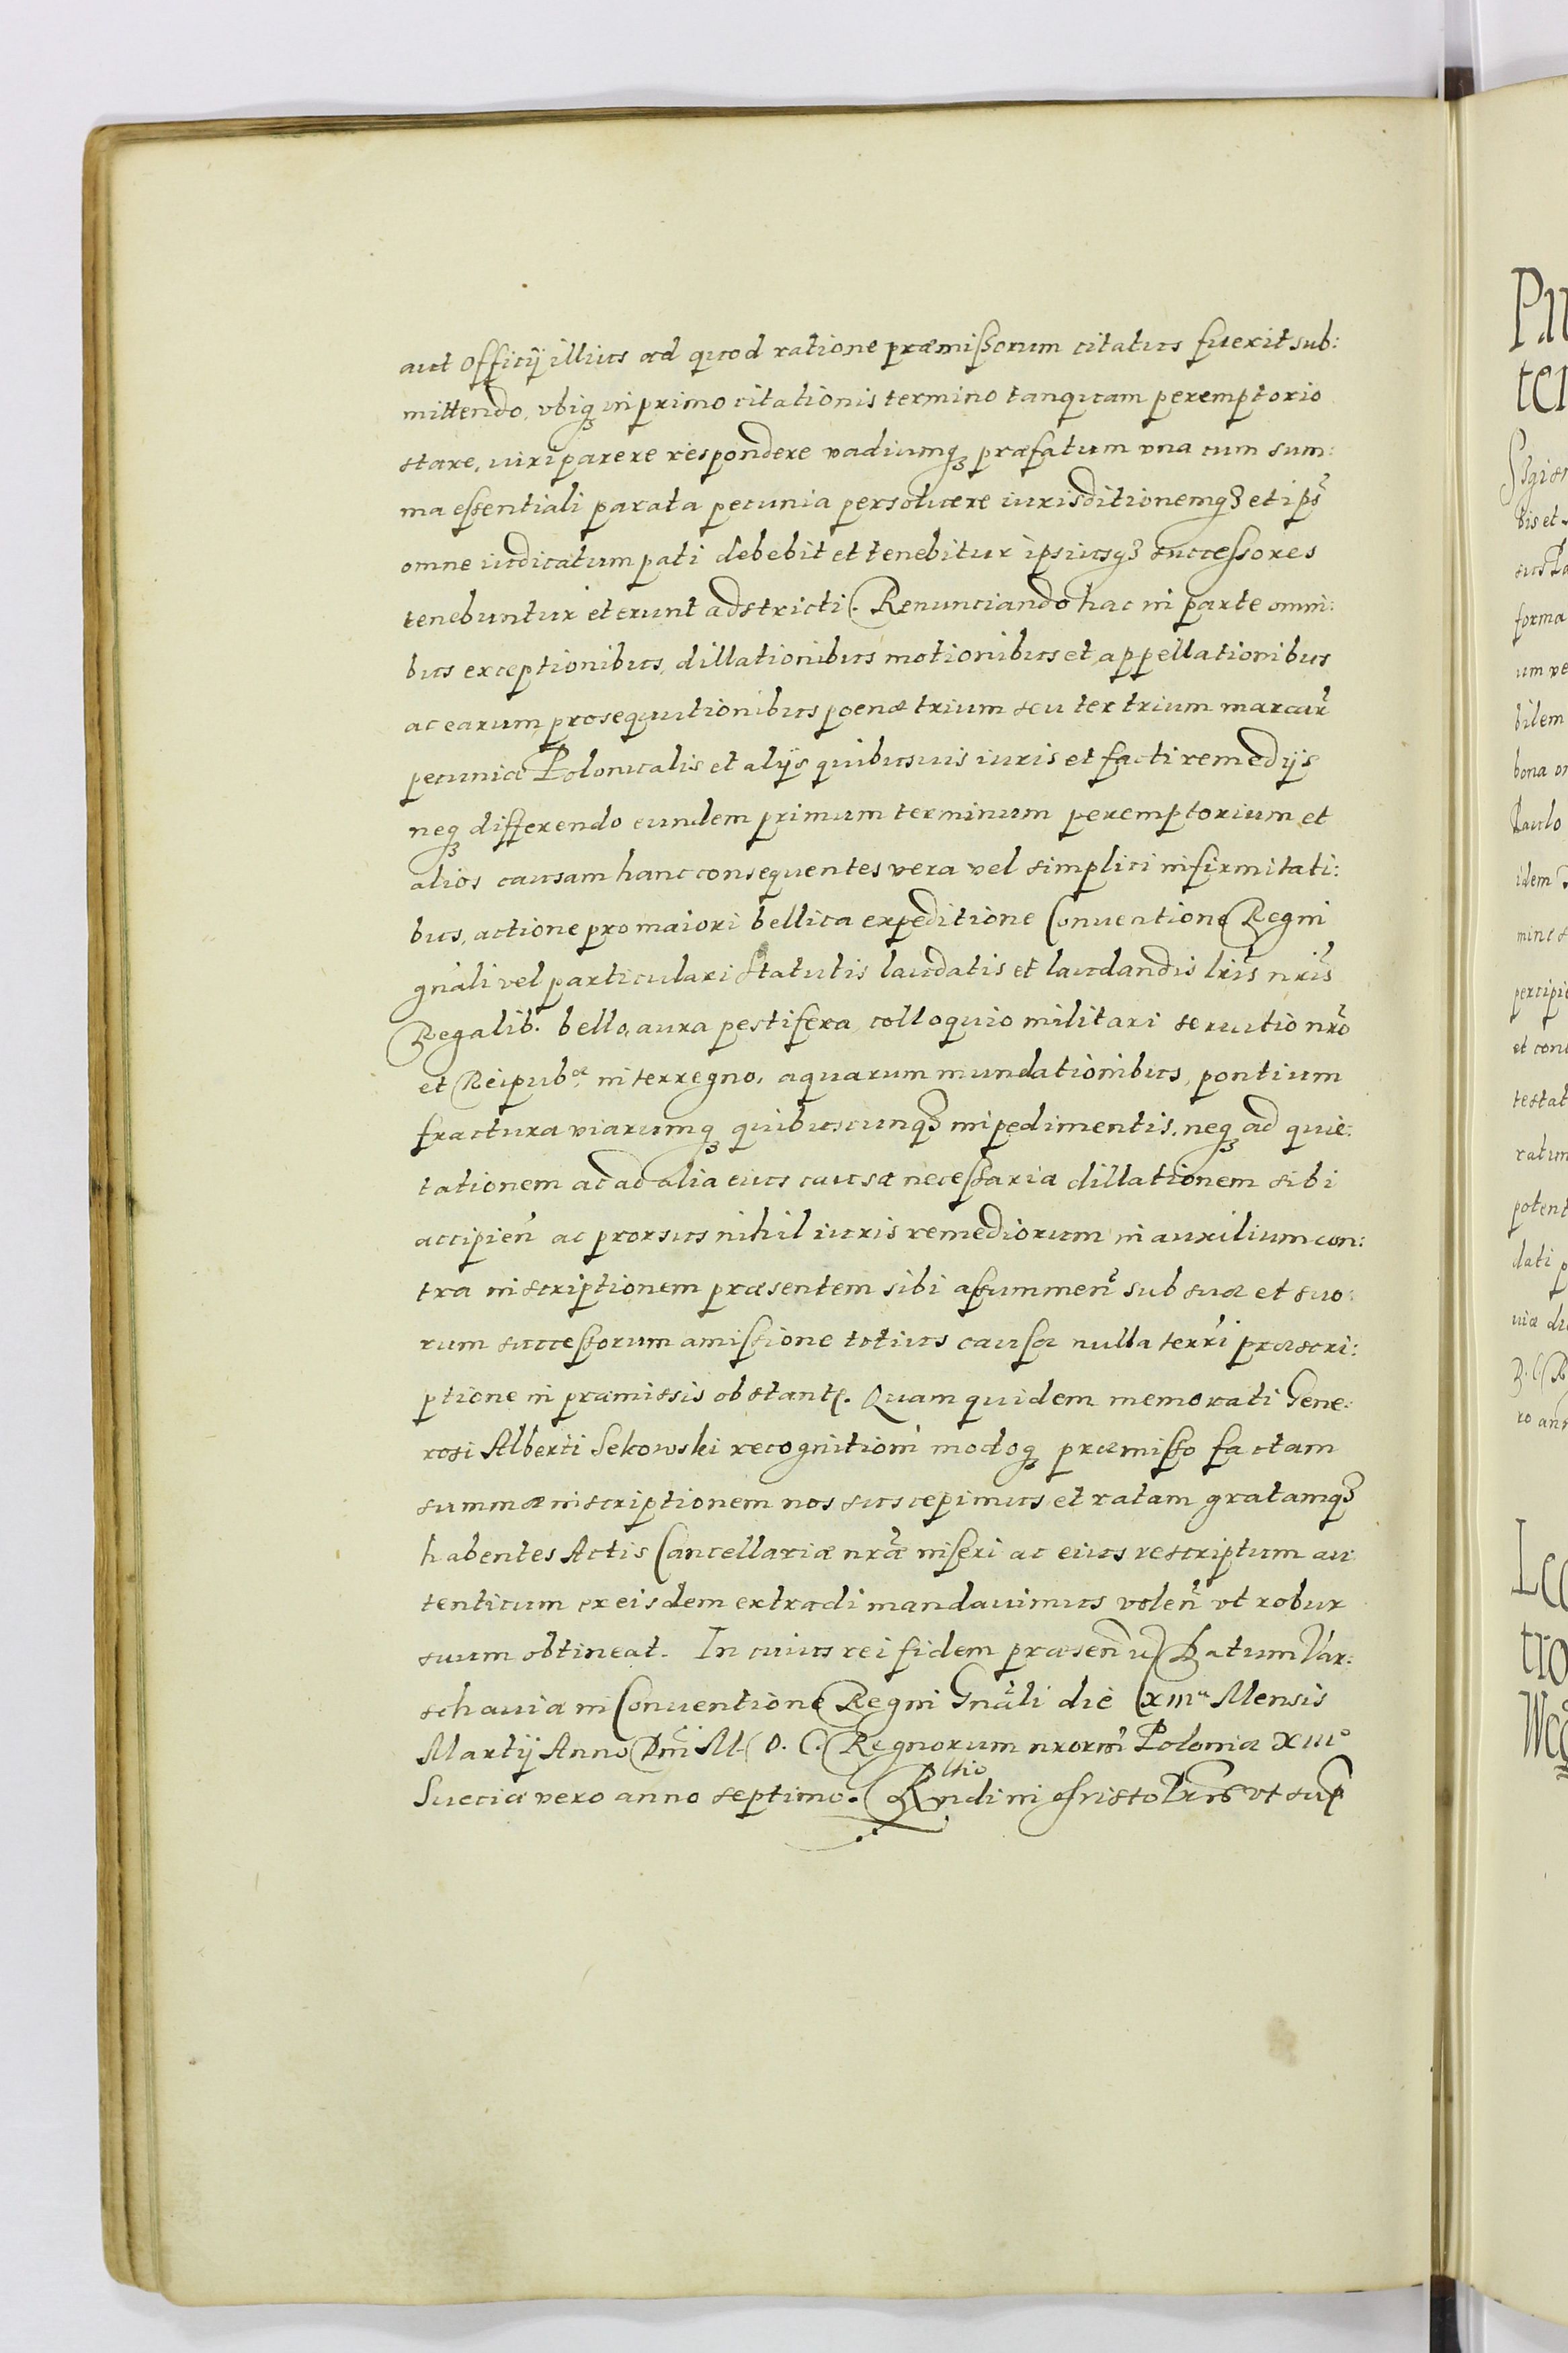 aut Officÿ illius ad quod ratione præmissorum citatus fuerit sub:
mittendo, vbiqꝫ in primo citationis termino tanquam peremptorio
stare, iuri parere respondere vadiumqꝫ præfatum vna cum sum:
ma essentiali parata pecunia persoluere iurisditionemqꝫ et ips̃
omne iudicatum pati debebit et tenebitur ipsiusqꝫ successores
tenebuntur et erunt adstricti. Renunciando hac in parte omni:
bus exceptionibus, dillationibus motionibus et appellationibus
ac earum prosequutionibus poenæ trium seu ter trium marcar̃
pecuniæ Polonicalis et alÿs quibusuis iuris et facti remedÿs
neqꝫ differendo eundem primum terminum peremptorium et
alios causam hanc consequentes vera vel simplici infirmitati:
bus, actione pro maiori bellica expeditione Conuentione Regni
gnãli vel particulari Statutis laudatis et laudandis lrĩs nrĩs
Regalib. bello, aura pestifera, colloquio militari seruitio nrõ
et Reipubᵃᵉ, interregno, aquarum inundationibus, pontium
fractura viarumqꝫ quibuscunqꝫ impedimentis, neqꝫ ad quie:
tationem ac ad alia eius causæ necessaria dillationem sibi
accipieñ ac prorsus nihil iuris remediorum in auxilium con:
tra inscriptionem præsentem sibi assummeñ sub sua et suo:
rum successorum amissione totius causæ nulla terrĩ præscri:
ptione in præmissis obstante. Quam quidem memorati Gene:
rosi Alberti Sekowski recognitioni modoqꝫ præmisso factam
summæ inscriptionem nos suscepimus et ratam gratamqꝫ
habentes Actis Cancellariæ nræ̃ inseri ac eius rescriptum au
tenticum ex eisdem extradi mandauimus voleñ vt robur
suum obtineat. In cuius rei fidem præseñ Datum Var:
schauiæ in Conuentione Regni Gnãli die xiiiᵃ Mensis
Martÿ Anno Dnĩ M. D. C. Regnorum nrorm̃ Poloniæ XIII°
Sueciæ vero anno septimo. ltio Rndi in Christo Prĩs vt sup